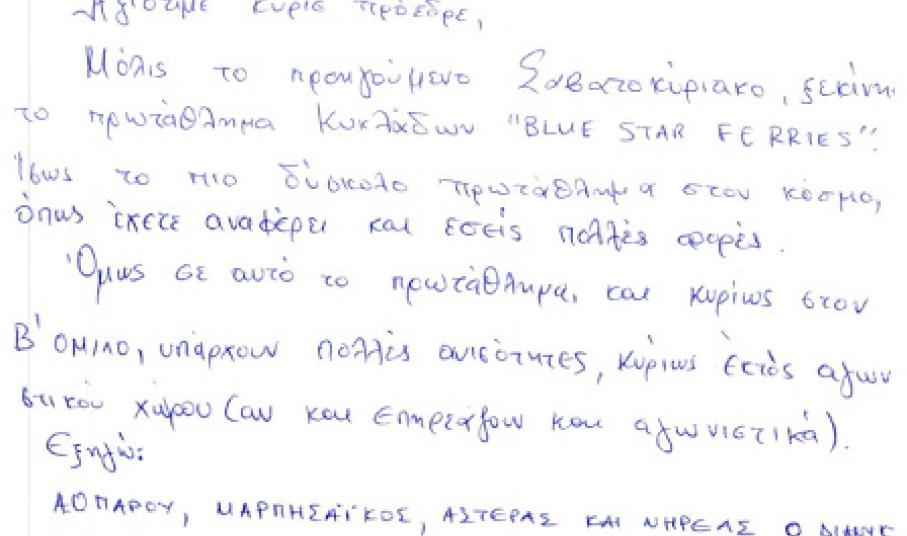 Αξιότιμε κύριε πρόεδρε,
Μόλις το προηγούμενο Σαβατοκύριακο, ξεκίνη
το πρωτάθλημα Κυκλάδων "BLUE STAR FERRIES".
Ίσως το πιο δύσκολο πρωτάθλημα στον κόσμο,
όπως έχετε αναφέρει και εσείς πολλές φορές.
Όμως σε αυτό το πρωτάθλημα, και κυρίως στον
Β' ΟΜΙΛΟ, υπάρχουν πολλές ανισότητες, κύριως έκτός αγων
στικού χώρου (αν και επηρεάζουν και αγωνιστικά).
Εξηγώ:
ΑΟ ΠΑΡΟΥ, ΜΑΡΠΗΣΑΪΚΟΣ, ΑΣΤΕΡΑΣ ΚΑΙ ΝΗΡΕΑΣ Ο